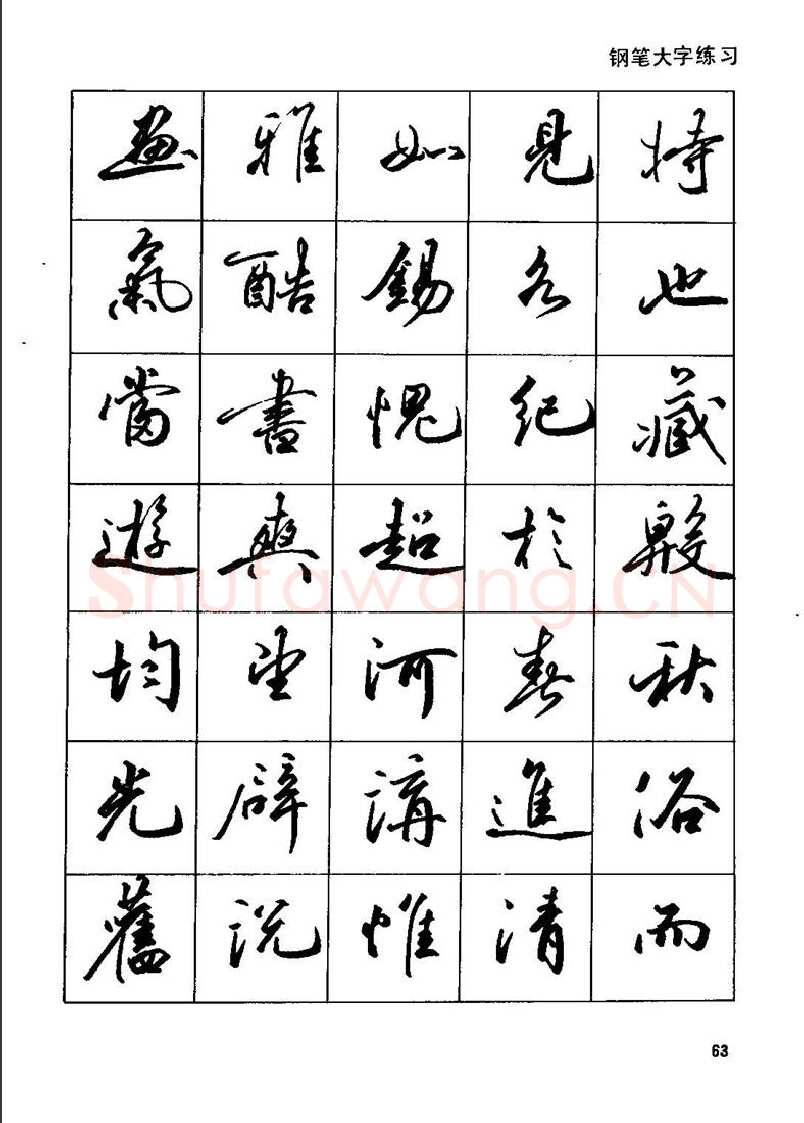 钢笔大字练习
畫 雅 如 見 持
氣 酷 錫 名 也
當 書 愧 紀 藏
遊 與 超 於
均 望 河 春 秋
光 辟 講 進 俗
舊 説 惟 清 而
Shufawang.CN
63